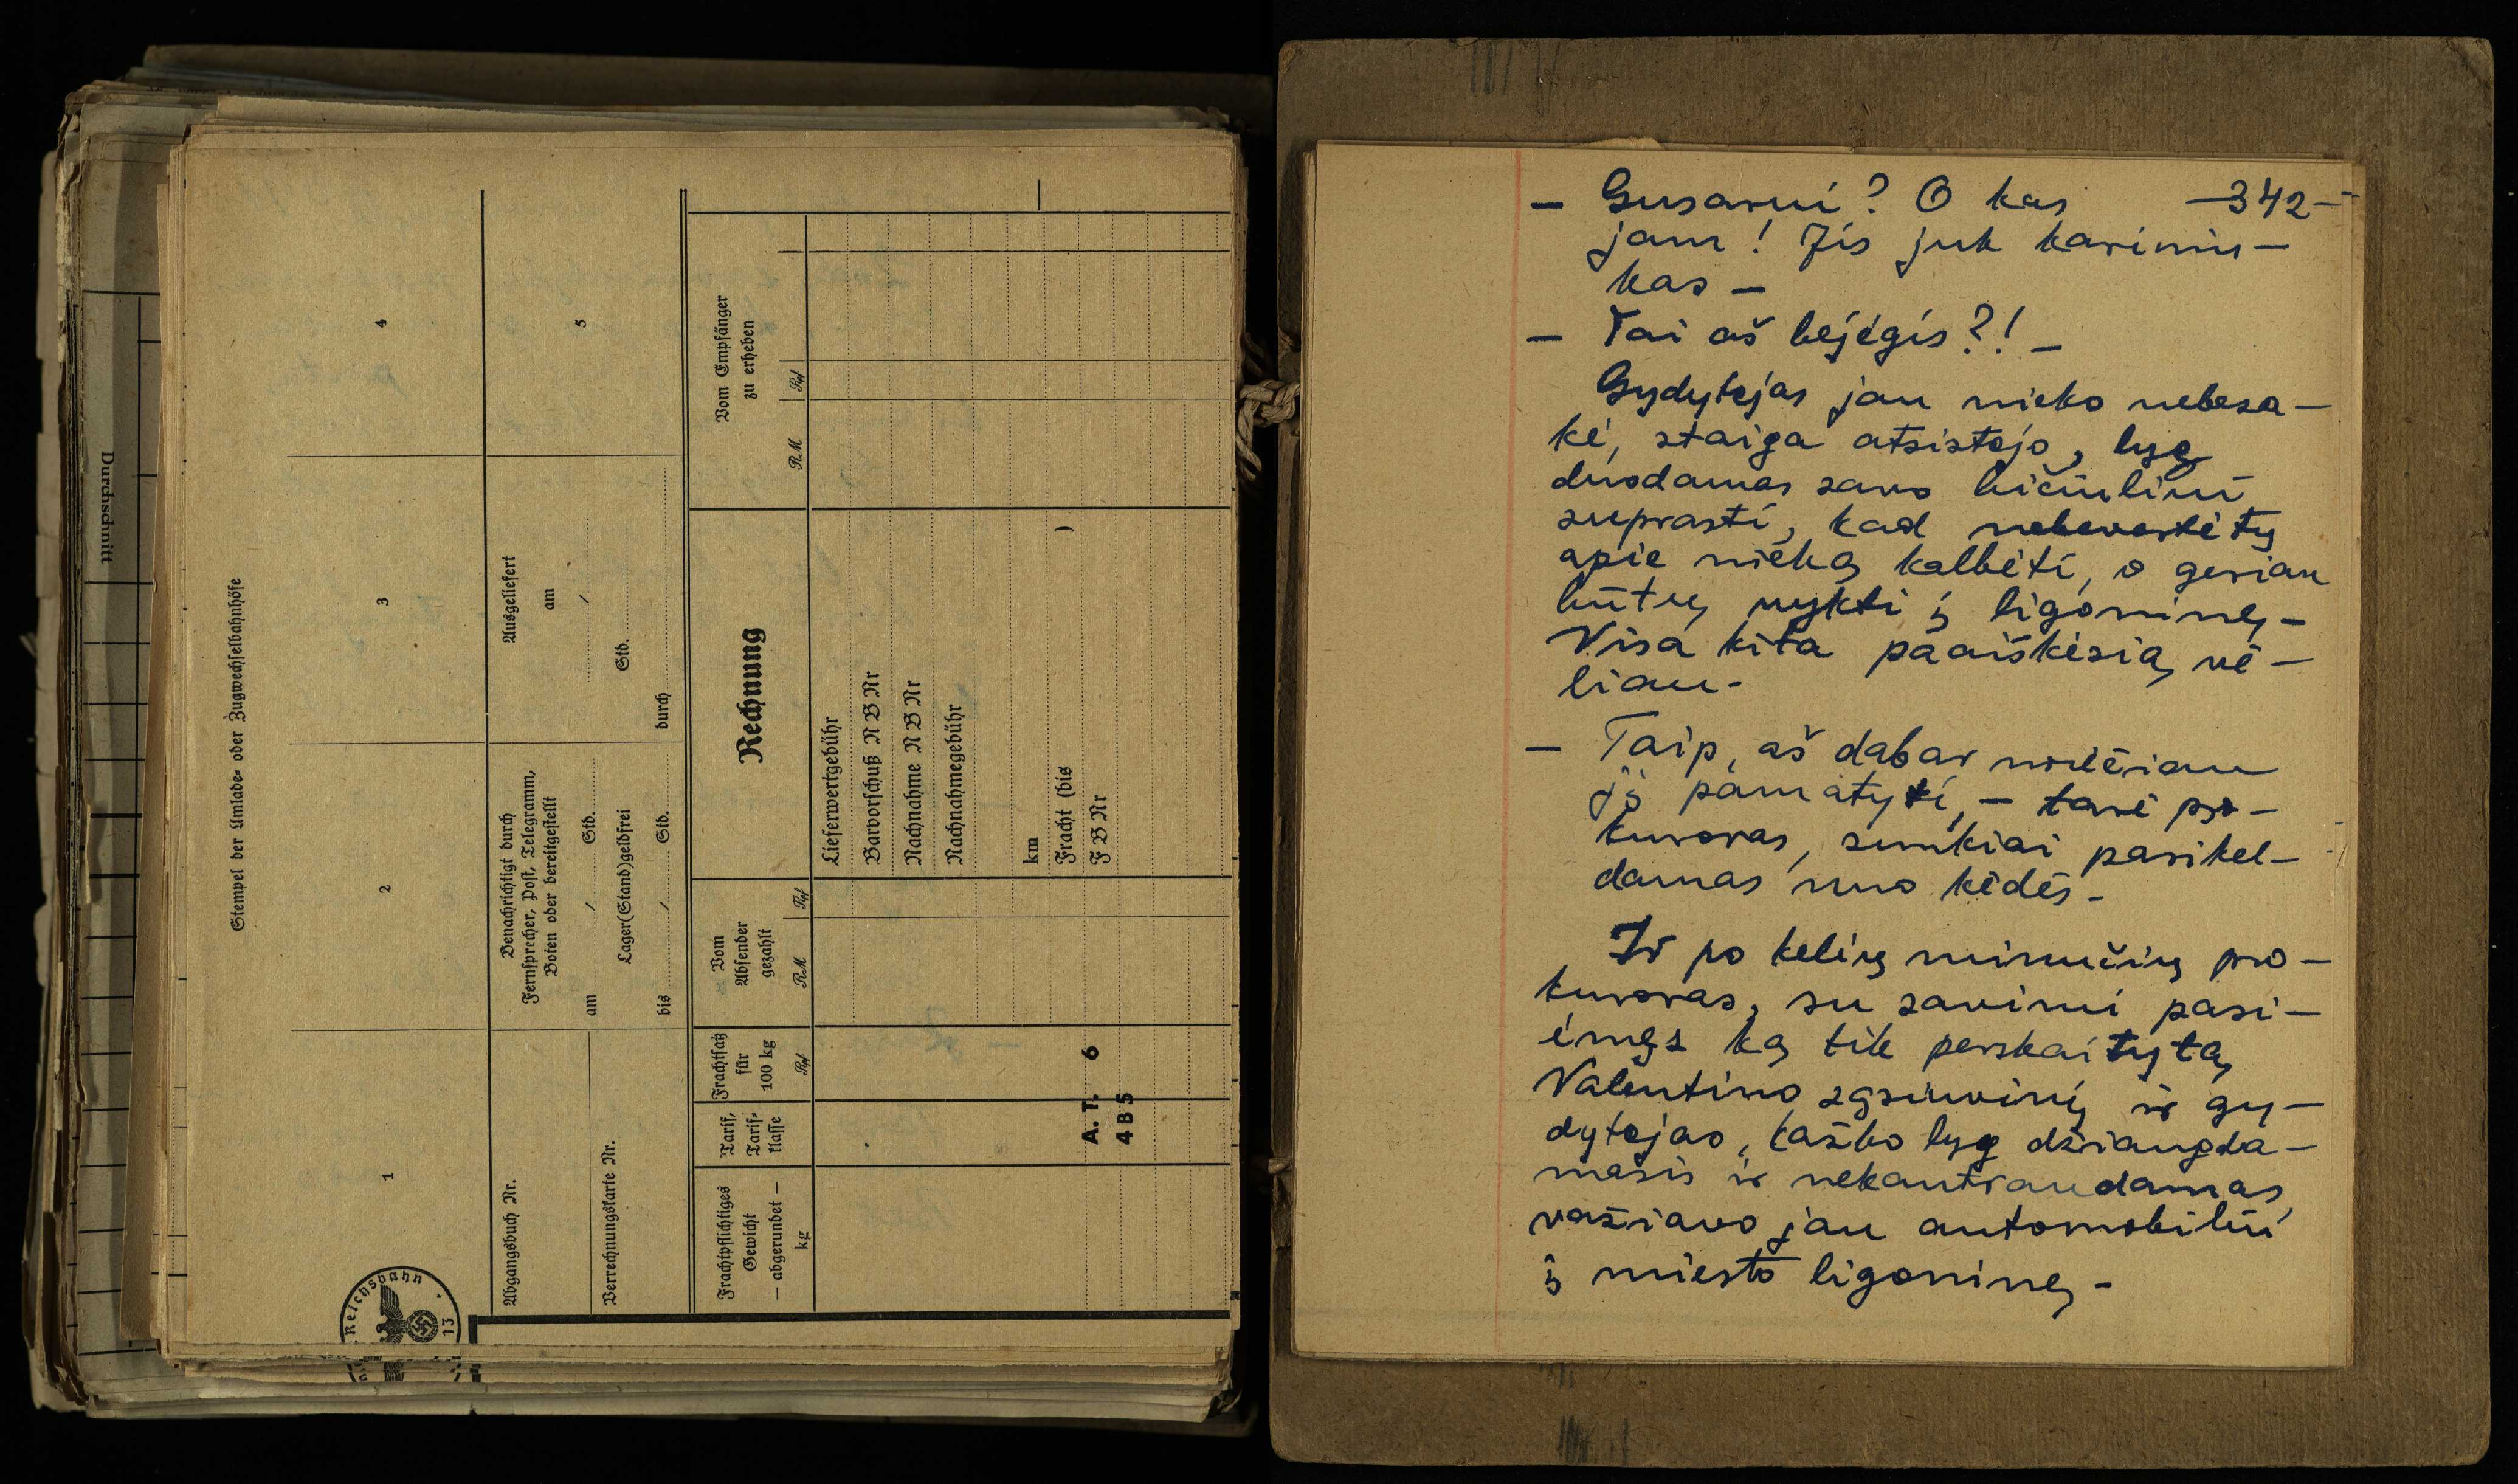 Durchschnitt
Stempel der Umlade- oder Zugwechselbahnhöfe
1
2
3
4
Abgangsbuch Nr.
Verrechnungskarte Nr.
Benachrichtigt durch
Fernsprecher, Post, Telegramm,
Boten oder bereitgestellt
am / Std.
Lager(Stand)geldfrei
bis / Std.
Ausgeliefert
am
/
Std.
durch
5
Reichsbahn
13
Frachtpflichtiges
Gewicht
— abgerundet —
kg
Tarif,
Tarif-
klasse
Frachtsatz
für
100 kg
Rpf
Vom
Absender
gezahlt
RM Rpf
Rechnung
Vom Empfänger
zu erheben
RM Rpf
Lieferwertgebühr
Barvorschuß N B Nr
Nachnahme N B Nr
Nachnahmegebühr
km
Fracht (bis )
F B Nr
A. T. 6
4 B 5
— Gusarui? O kas —342—
jam! Jis juk karinin—
kas —
— Tai aš bejėgis?! —
Gydytojas jau nieko nebesa—
kė, staiga atsistojo, lyg
duodamas savo bičiuliui
suprasti, kad nebevertėtų
apie nieką kalbėti, o geriau
būtų vykti į ligoninę —
Visa kita paaiškėsią vė—
liau —
— Taip, aš dabar norėčiau
jį pamatyti, — tarė pro—
kuroras, sunkiai pasikel—
damas nuo kėdės —
Ir po kelių minučių pro—
kuroras, su savimi pasi—
ėmęs ką tik perskaitytą
Valentino sąsiuvinį ir gy—
dytojas, kažko lyg džiaugda—
masis ir nekantraudamas
važiavo jau automobiliu
į miesto ligoninę —